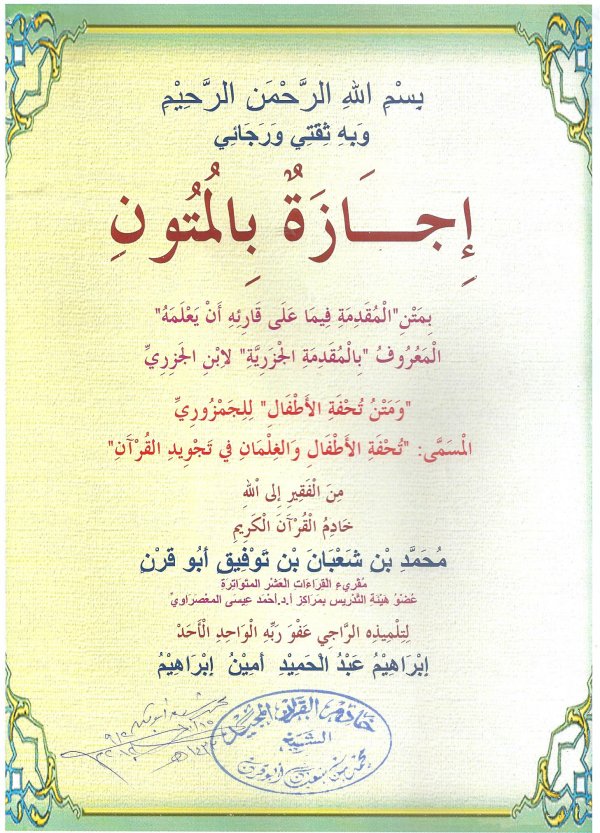 بِسْمِ اللهِ الرَّحْمَنِ الرَّحِيْمِ
وَبِهِ ثِقَتِي وَرَجَائِي
إِجَـــازَةٌ بِالْمُتُونِ
بِمَتْنِ"الْمُقَدِمَةِ فِيمَا عَلَى قَارِئِهِ أَنْ يَعْلَمَهُ"
الْمَعْرُوفُ "بِالْمُقَدِمَةِ الْجَزَرِيَّةِ" لِابْنِ الجَزِرِيِّ
"وَمَتْنُ تُحْفَةِ الأَطْفَالِ" لِلِجَمْزُورِيِّ
الْمُسَمَّى: "تُحْفَةِ الأَطْفَالِ وَالغِلْمَانِ فِي تَجْوِيدِ القُرْآنِ"
مِنَ الْفَقِيرِ إِلى اللهِ
خَادِمُ الْقُرْآنَ الْكَرِيمِ
مُحَمَّدِ بْنِ شَعْبَانَ بْنِ تَوْفِيقِ أَبُو قَرْنِ
مُقْرِيءِ القَرَاءَاتِ العَشْرِ المتَوَاتِرَة
عُضْوُ هَيْئَة التَّدْرِيس بمَرَاكِز أ.د.أحْمَد عِيسَى المَعْصَرَاوِيِّ
لِتِلْمِيذِه الرَّاجِي عَفْوَ رَبِّهِ الْوَاحِدِ الْأَحَدْ
إِبْرَاهِيْمُ عَبْدُ الْحَمِيْدِ أَمِيْنُ إِبْرَاهِيْمُ
خادم القرآن المجيد
الشيخ
محمد بن شعبان أبو قرن